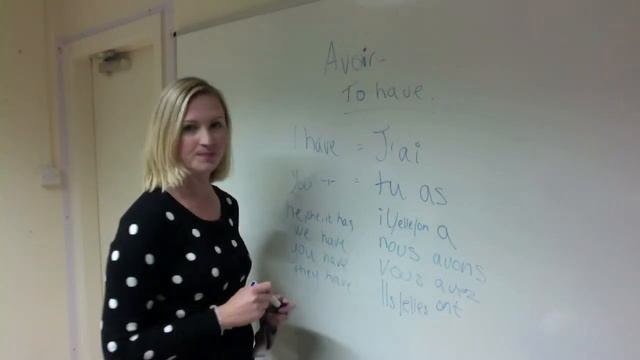 Avoir-
To have.
I have = J'ai
You + = tu as
he/she/it has il/elle/on a
we have nous avons
you have vous avez
they have Ils/elles ont